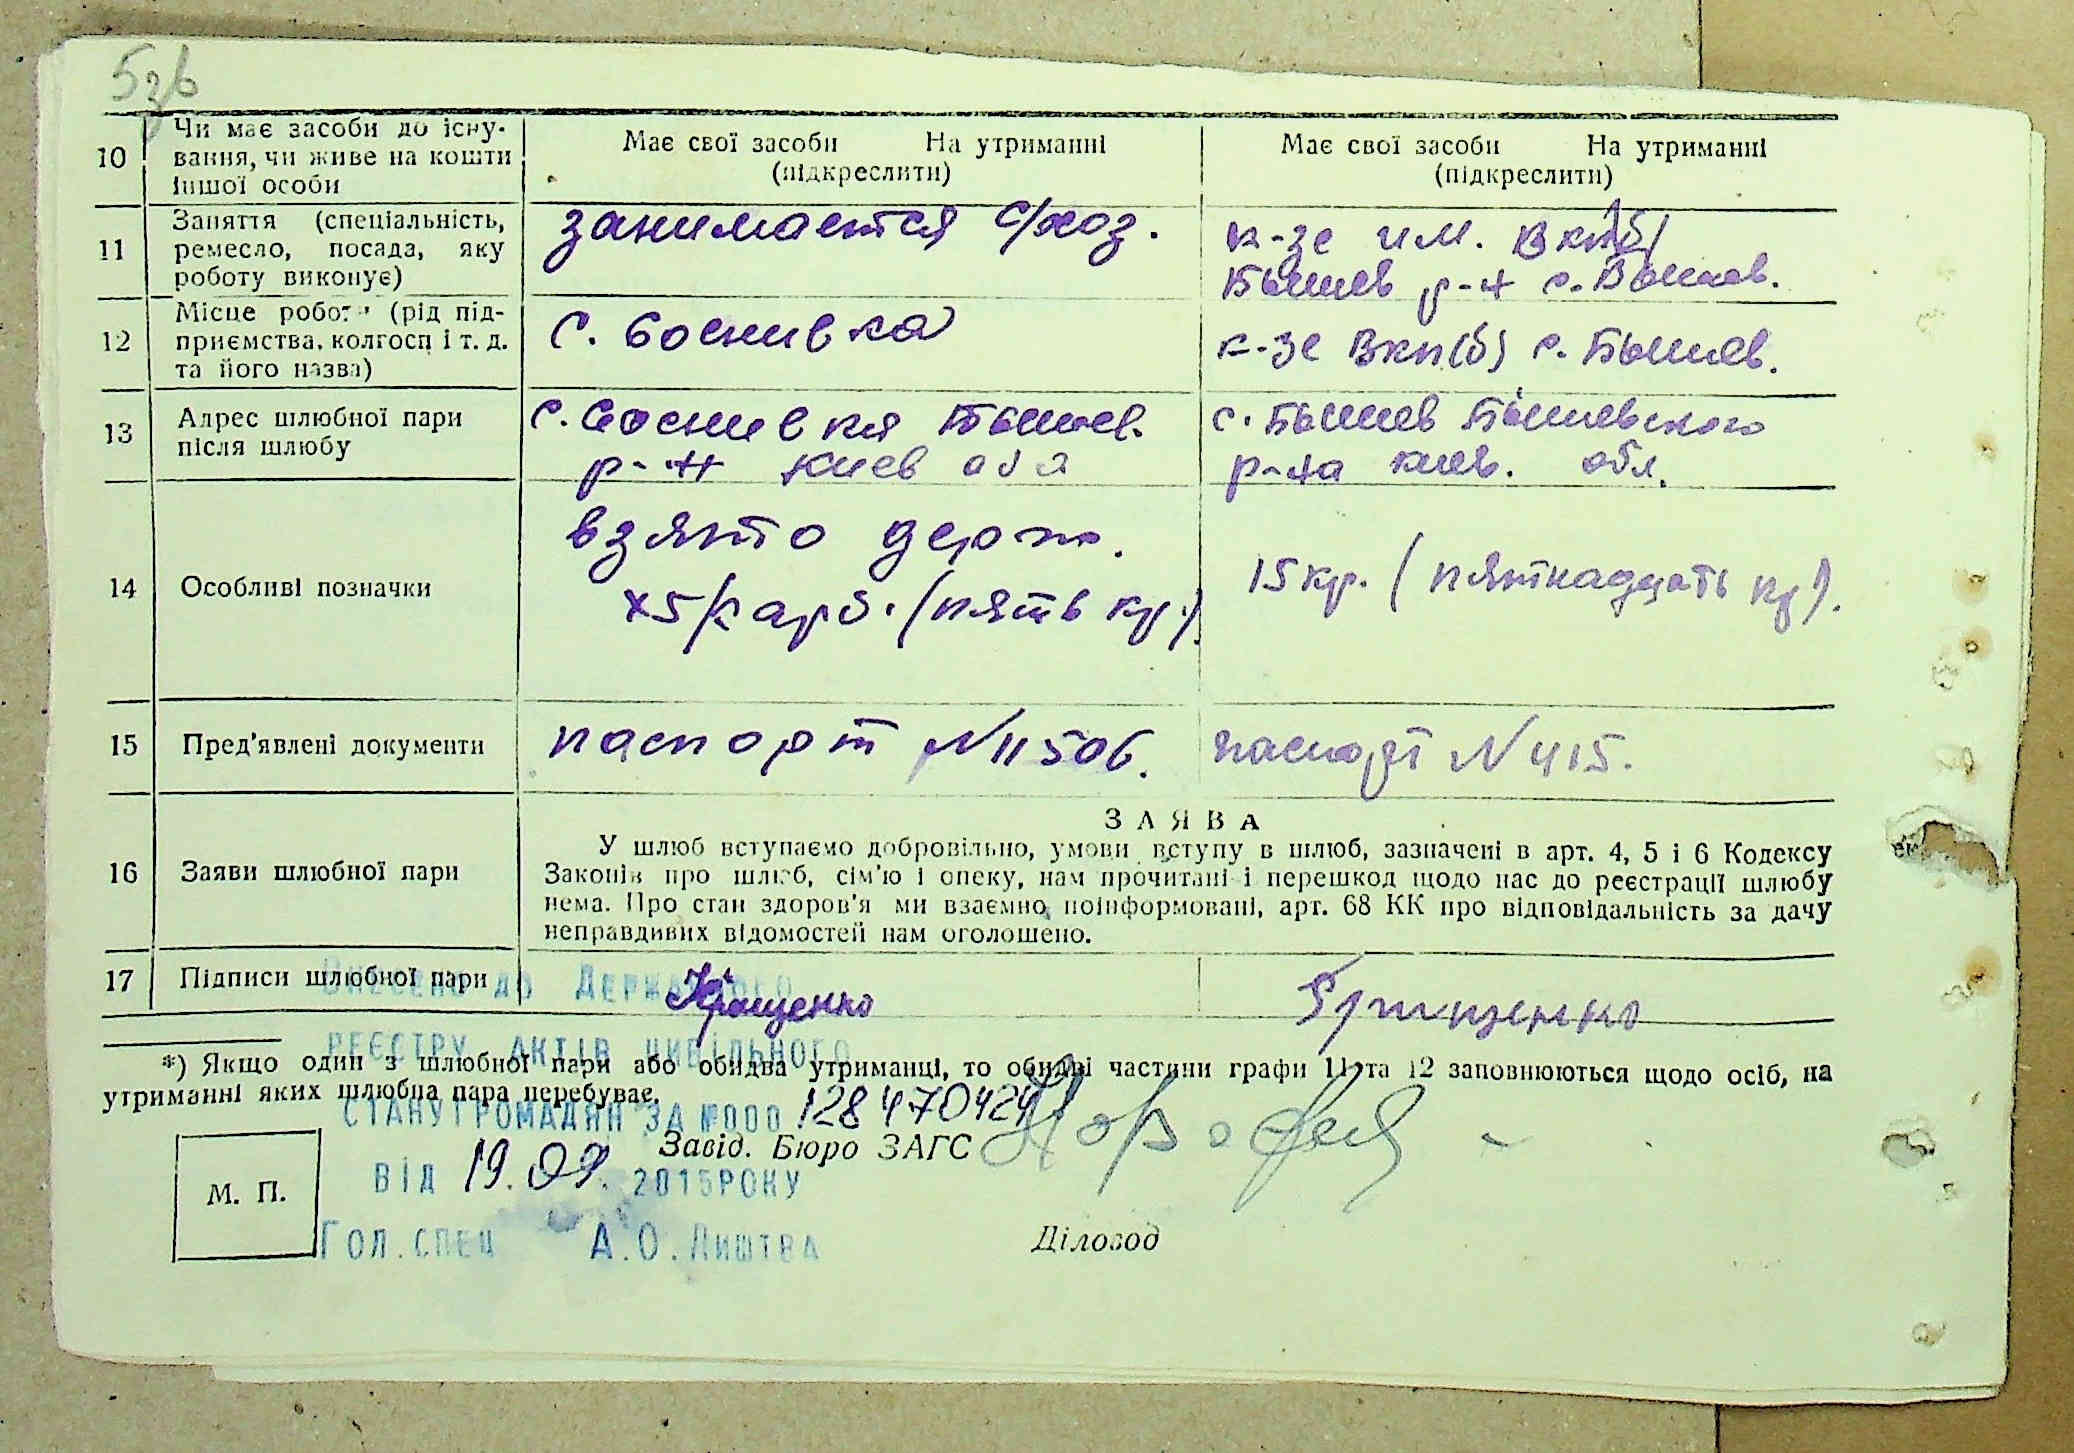 5зв
10 Чи має засоби до існу-
вання, чи живе на кошти
іншої особи
Має свої засоби На утриманні
(підкреслити)
Має свої засоби На утриманні
(підкреслити)
11 Заняття (спеціальність,
ремесло, посада, яку
роботу виконує)
занимается с/хоз.
к-зе им. Вкп(б)
Бышев р-н с. Бышев.
12 Місце робот (рід під-
приємства, колгосп і т. д.
та його назва)
с. Соснивка
к-зе Вкп(б) с. Бышев.
13 Адрес шлюбної пари
після шлюбу
с. Соснивка Бышев.
р-н Киев обл
с. Бышев Бышевского
р-на киев. обл.
14 Особливі позначки
взято держ.
х5/карб. (пять кр.)
15 кр. (пятнадцать кр).
15 Пред'явлені документи
паспорт №11506.
паспорт №415.
16 Заяви шлюбної пари
ЗАЯВА
У шлюб вступаємо добровільно, умови вступу в шлюб, зазначені в арт. 4, 5 і 6 Кодексу
Законів про шлюб, сім'ю і опеку, нам прочитані і перешкод щодо нас до реєстрації шлюбу
нема. Про стан здоров'я ми взаємно поінформовані, арт. 68 КК про відповідальність за дачу
неправдивих відомостей нам оголошено.
17 Підписи шлюбної пари
Грищенко
Внесено до Державного
реєстру актів цивільного
стану громадян за №000 128470424
від 19.09. 2015року
Гол.спец А.О.Лиштва
*) Якщо один з шлюбної пари або обидва утриманці, то обидві частини графи 11 та 12 заповнюються щодо осіб, на
утриманні яких шлюбна пара перебуває.
Завід. Бюро ЗАГС
М. П.
Діловод